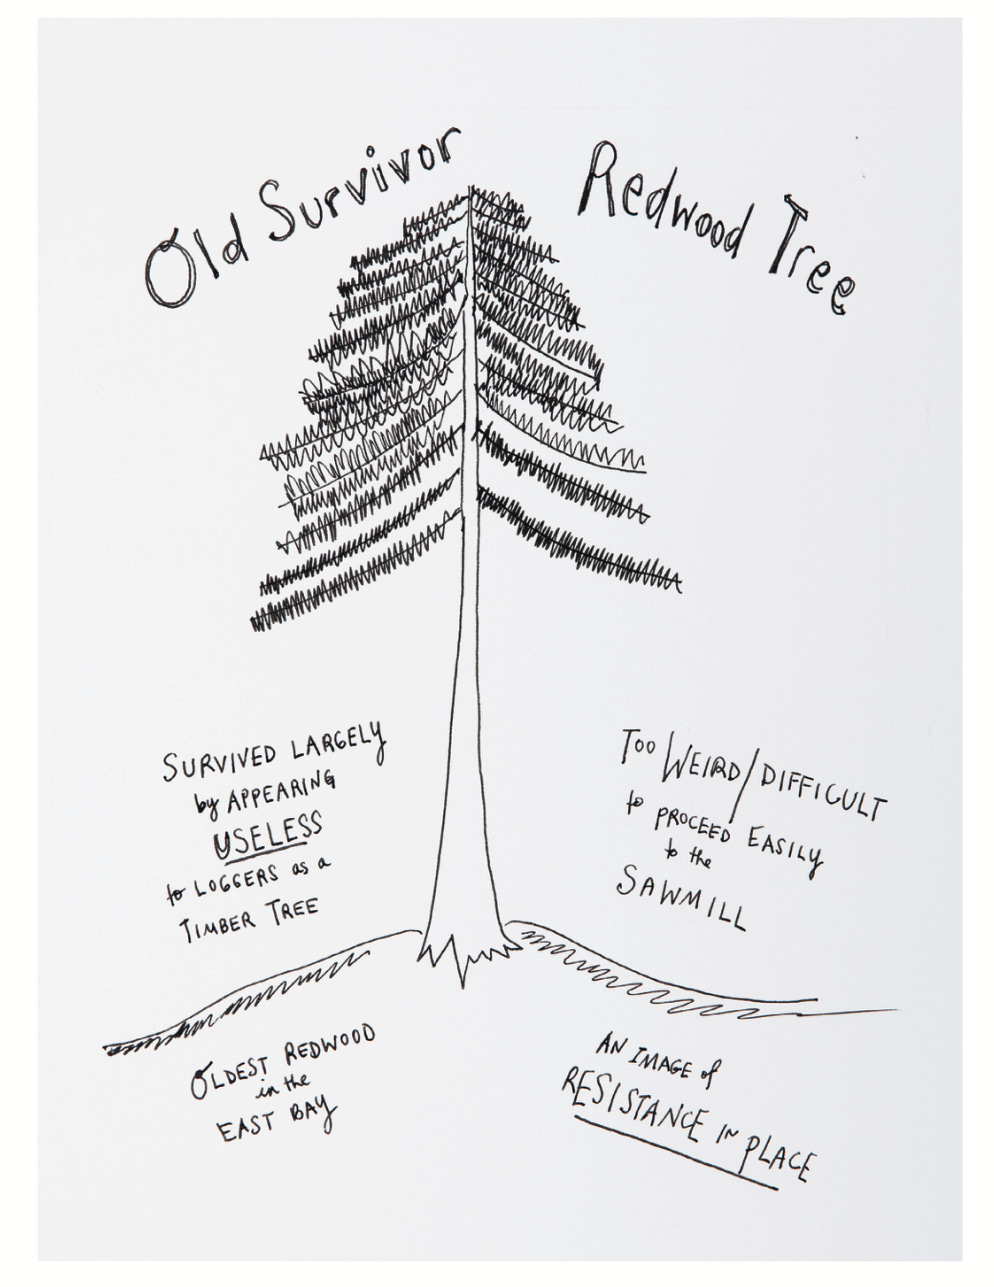 Old Survivor Redwood Tree
SURVIVED LARGELY
by APPEARING
USELESS
to LOGGERS as a
TIMBER TREE
TOO WEIRD/DIFFICULT
to PROCEED EASILY
to the
SAWMILL
OLDEST REDWOOD
in the
EAST BAY
AN IMAGE of
RESISTANCE IN PLACE